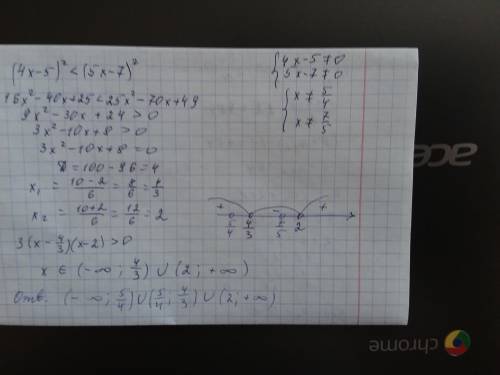 (4x-5)² < (5x-7)²
16x² - 40x + 25 < 25x² - 70x + 49
9x² - 30x + 24 > 0
3x² - 10x + 8 > 0
3x² - 10x + 8 = 0
D = 100 - 96 = 4
x₁ = (10-2)/6 = 8/6 = 4/3
x₂ = (10+2)/6 = 12/6 = 2
3(x - 4/3)(x-2) > 0
x ∈ (-∞; 4/3) ∪ (2; +∞)
Отв. (-∞; 5/4) ∪ (5/4; 4/3) ∪ (2; +∞)
{ 4x-5 ≠ 0
5x-7 ≠ 0
{ x ≠ 5/4
x ≠ 7/5
+ - +
5/4 4/3 7/5 2
ace
chrome